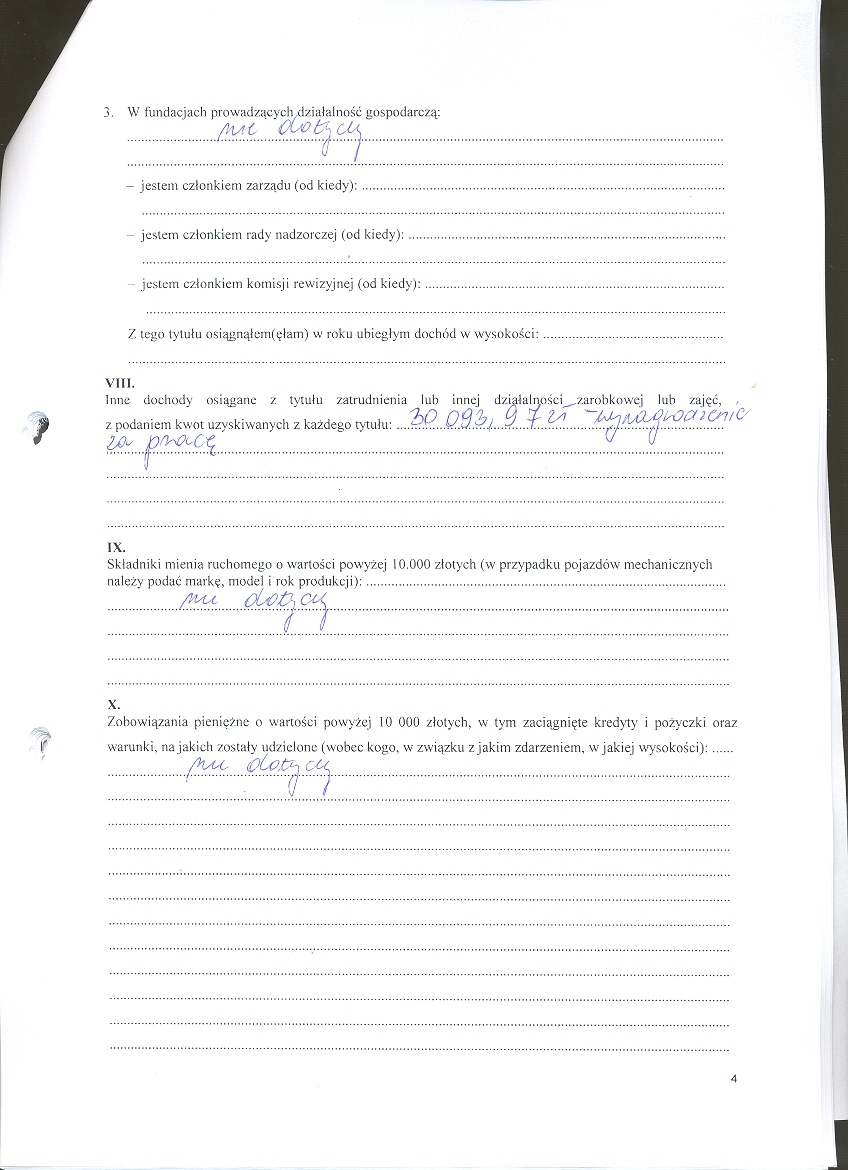 3. W fundacjach prowadzących działalność gospodarczą:
nie dotyczy
– jestem członkiem zarządu (od kiedy):
– jestem członkiem rady nadzorczej (od kiedy):
– jestem członkiem komisji rewizyjnej (od kiedy):
Z tego tytułu osiągnąłem(ęłam) w roku ubiegłym dochód w wysokości:
VIII.
Inne dochody osiągane z tytułu zatrudnienia lub innej działalności zarobkowej lub zajęć,
z podaniem kwot uzyskiwanych z każdego tytułu: 30 093,97 zł – wynagrodzenie
za pracę
IX.
Składniki mienia ruchomego o wartości powyżej 10.000 złotych (w przypadku pojazdów mechanicznych
należy podać markę, model i rok produkcji):
nie dotyczy
X.
Zobowiązania pieniężne o wartości powyżej 10 000 złotych, w tym zaciągnięte kredyty i pożyczki oraz
warunki, na jakich zostały udzielone (wobec kogo, w związku z jakim zdarzeniem, w jakiej wysokości):
nie dotyczy
4